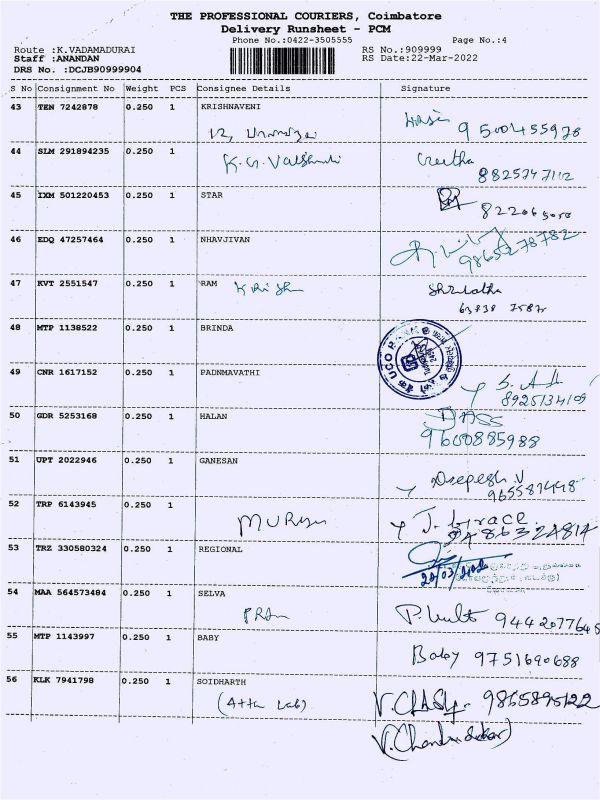 THE PROFESSIONAL COURIERS, Coimbatore
Delivery Runsheet - PCM
Phone No.:0422-3505555 Page No.:4
Route :K.VADAMADURAI RS No.:909999
Staff :ANANDAN RS Date:22-Mar-2022
DRS No. :DCJB90999904
S No Consignment No Weight PCS Consignee Details Signature
43 TEN 7242878 0.250 1 KRISHNAVENI
12,
44 SLM 291894235 0.250 1
K.G. Geetha
8825747112
45 IXM 501220453 0.250 1 STAR
46 EDQ 47257464 0.250 1 NHAVJIVAN
9865278782
47 KVT 2551547 0.250 1 RAM Krish
48 MTP 1138522 0.250 1 BRINDA
UCO BANK
49 CNR 1617152 0.250 1 PADNMAVATHI
8925134109
50 GDR 5253168 0.250 1 HALAN DASS
9600885988
51 UPT 2022946 0.250 1 GANESAN
V
52 TRP 6143945 0.250 1
J. Grace
53 TRZ 330580324 0.250 1 REGIONAL
54 MAA 564573484 0.250 1 SELVA
P. 9442077645
55 MTP 1143997 0.250 1 BABY
Baby 9751690688
56 KLK 7941798 0.250 1 SOIDHARTH
(Atta Lab) 9865895122